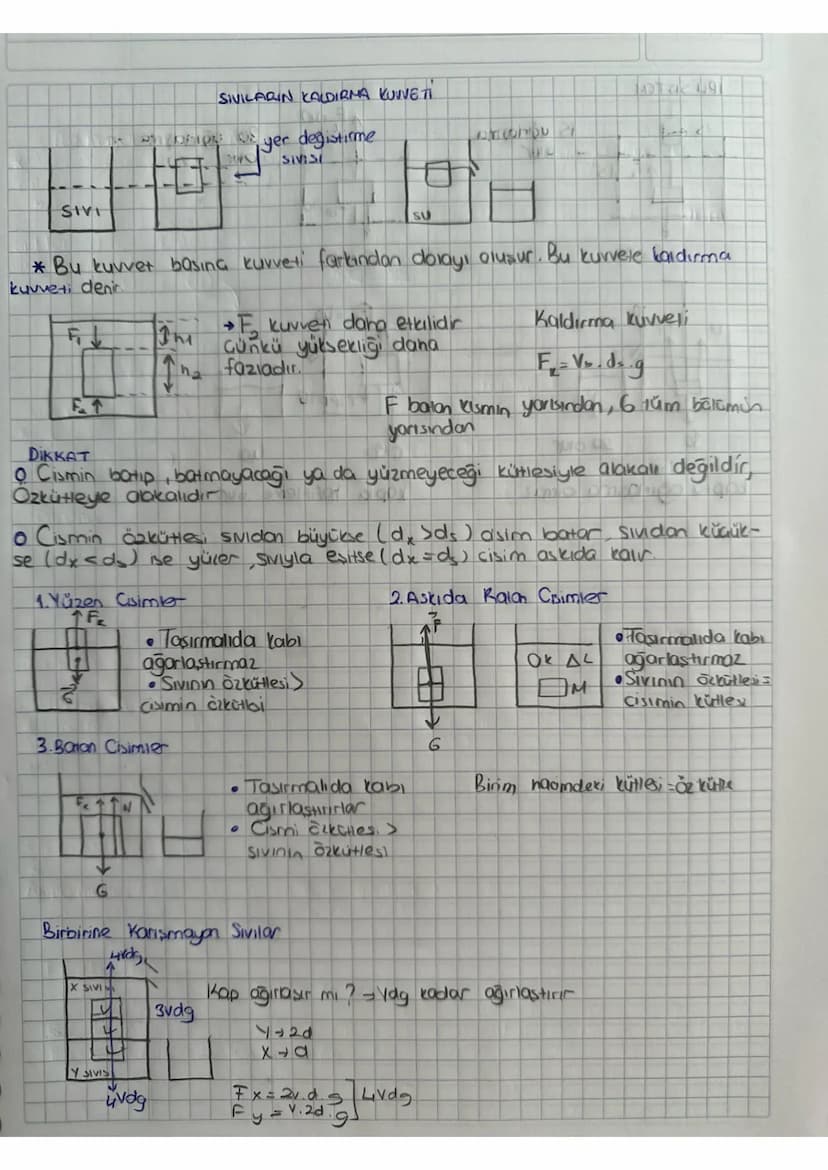 SIVILARIN KALDIRMA KUVVETİ
yer değiştirme
sıvısı
SIVI
SU
* Bu kuvvet basınç kuvveti farkından dolayı oluşur. Bu kuvvete kaldırma
kuvveti denir.
F₁ h1
F₂ h2
→ F₂ kuvveti daha etkilidir
çünkü yüksekliği daha
fazladır.
Kaldırma kuvveti
F = V . d . g
F batan kısmın yarısından, G tüm bölümün
yarısından
DİKKAT
o Cismin batıp, batmayacağı ya da yüzmeyeceği kütlesiyle alakalı değildir,
Özkütleye alakalıdır
o Cismin özkütlesi sıvıdan büyükse (dx > ds) cisim batar, sıvıdan küçük-
se (dx < ds) ise yüzer, sıvıyla eşitse (dx = ds) cisim askıda kalır.
1. Yüzen Cisimler
• Taşırmalıda kabı
ağarlaştırmaz
• Sıvının özkütlesi >
cisimin özkütlsi
2. Askıda Kalan Cisimler
F
G
OK ΔL
M
• Taşırmalıda kabı
ağarlaştırmaz
• Sıvının özkütlesi =
cisimin kütlesi
3. Batan Cisimler
N
G
• Taşırmalıda kabı
ağırlaştırırlar
• Cismi özkütles. >
sıvının özkütlesi
Birim hacimdeki kütlesi = öz kütle
Birbirine Karışmayan Sıvılar
4vdg
X SIVI
Y SIVISI
3vdg
4vdg
Kap ağırlaşır mı? → Vdg kadar ağırlaştırır
Y → 2d
X → d
Fx = 2v.d.g
Fy = v.2d.g ] 4vdg